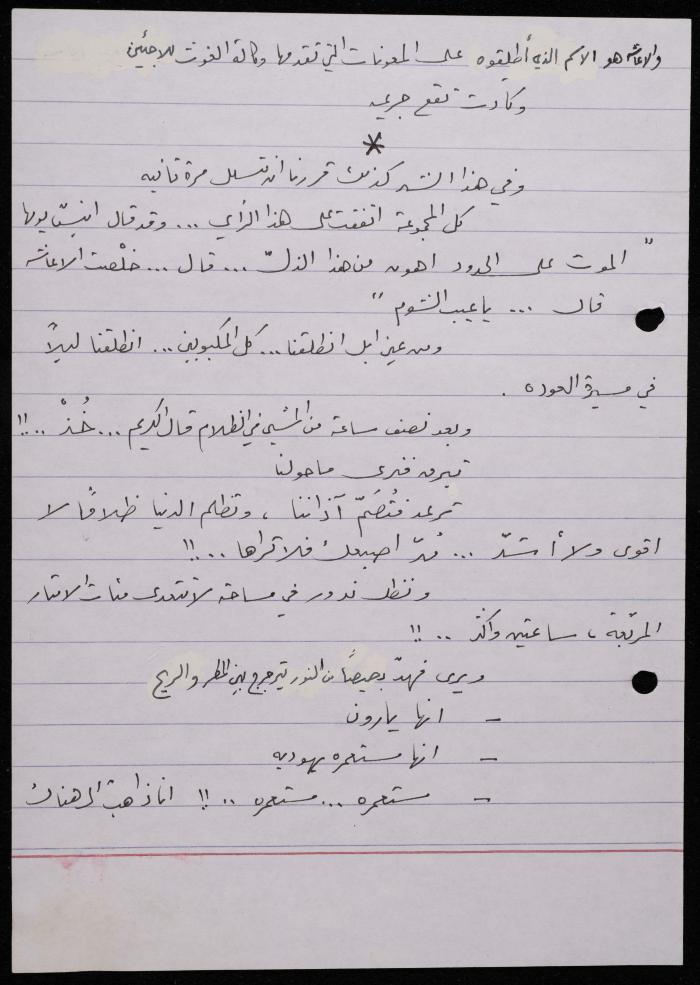 والاعاشه هو الاسم الذي أطلقوه على المعونات التي تقدمها وكالة الغوث للاجئين
وكادت تقع جريمه
*
وفي هذا الشهر كذلك قررنا ان نتسلل مرة ثانيه
كل المجموعة اتفقت على هذا الرأي ... وقد قال انيس يومها
" الموت على الحدود اهون من هذا الذلّ ... قال ... خلْصت الاعاشه
قال ... يا عيب الشوم "
ومن عين ابل انطلقنا ... كل المكبوبين ... انطلقنا ليلاً
في مسيرة العوده .
وبعد نصف ساعة من المشي في الظلام قال الكريم ... خُذْ .. !!
تبرق فنرى ما حولنا
ترعد فتُصَمّ آذاننا ، وتظلم الدنيا ظلاماً لا
اقوى ولا أشدّ ... مُدّ اصبعك فلا تراها .. !!
ونظل ندور في مساحة لا تتعدى مئات الامتار
المربّعة ، ساعتين واكثر .. !!
ويرى فهدٌ بصيصاً من النور يترجرج بين المطر والريح
– انها يارون
– انها مستعمره يهوديه
– مستعمره ... مستعمره .. !! انا ذاهب الى هناك